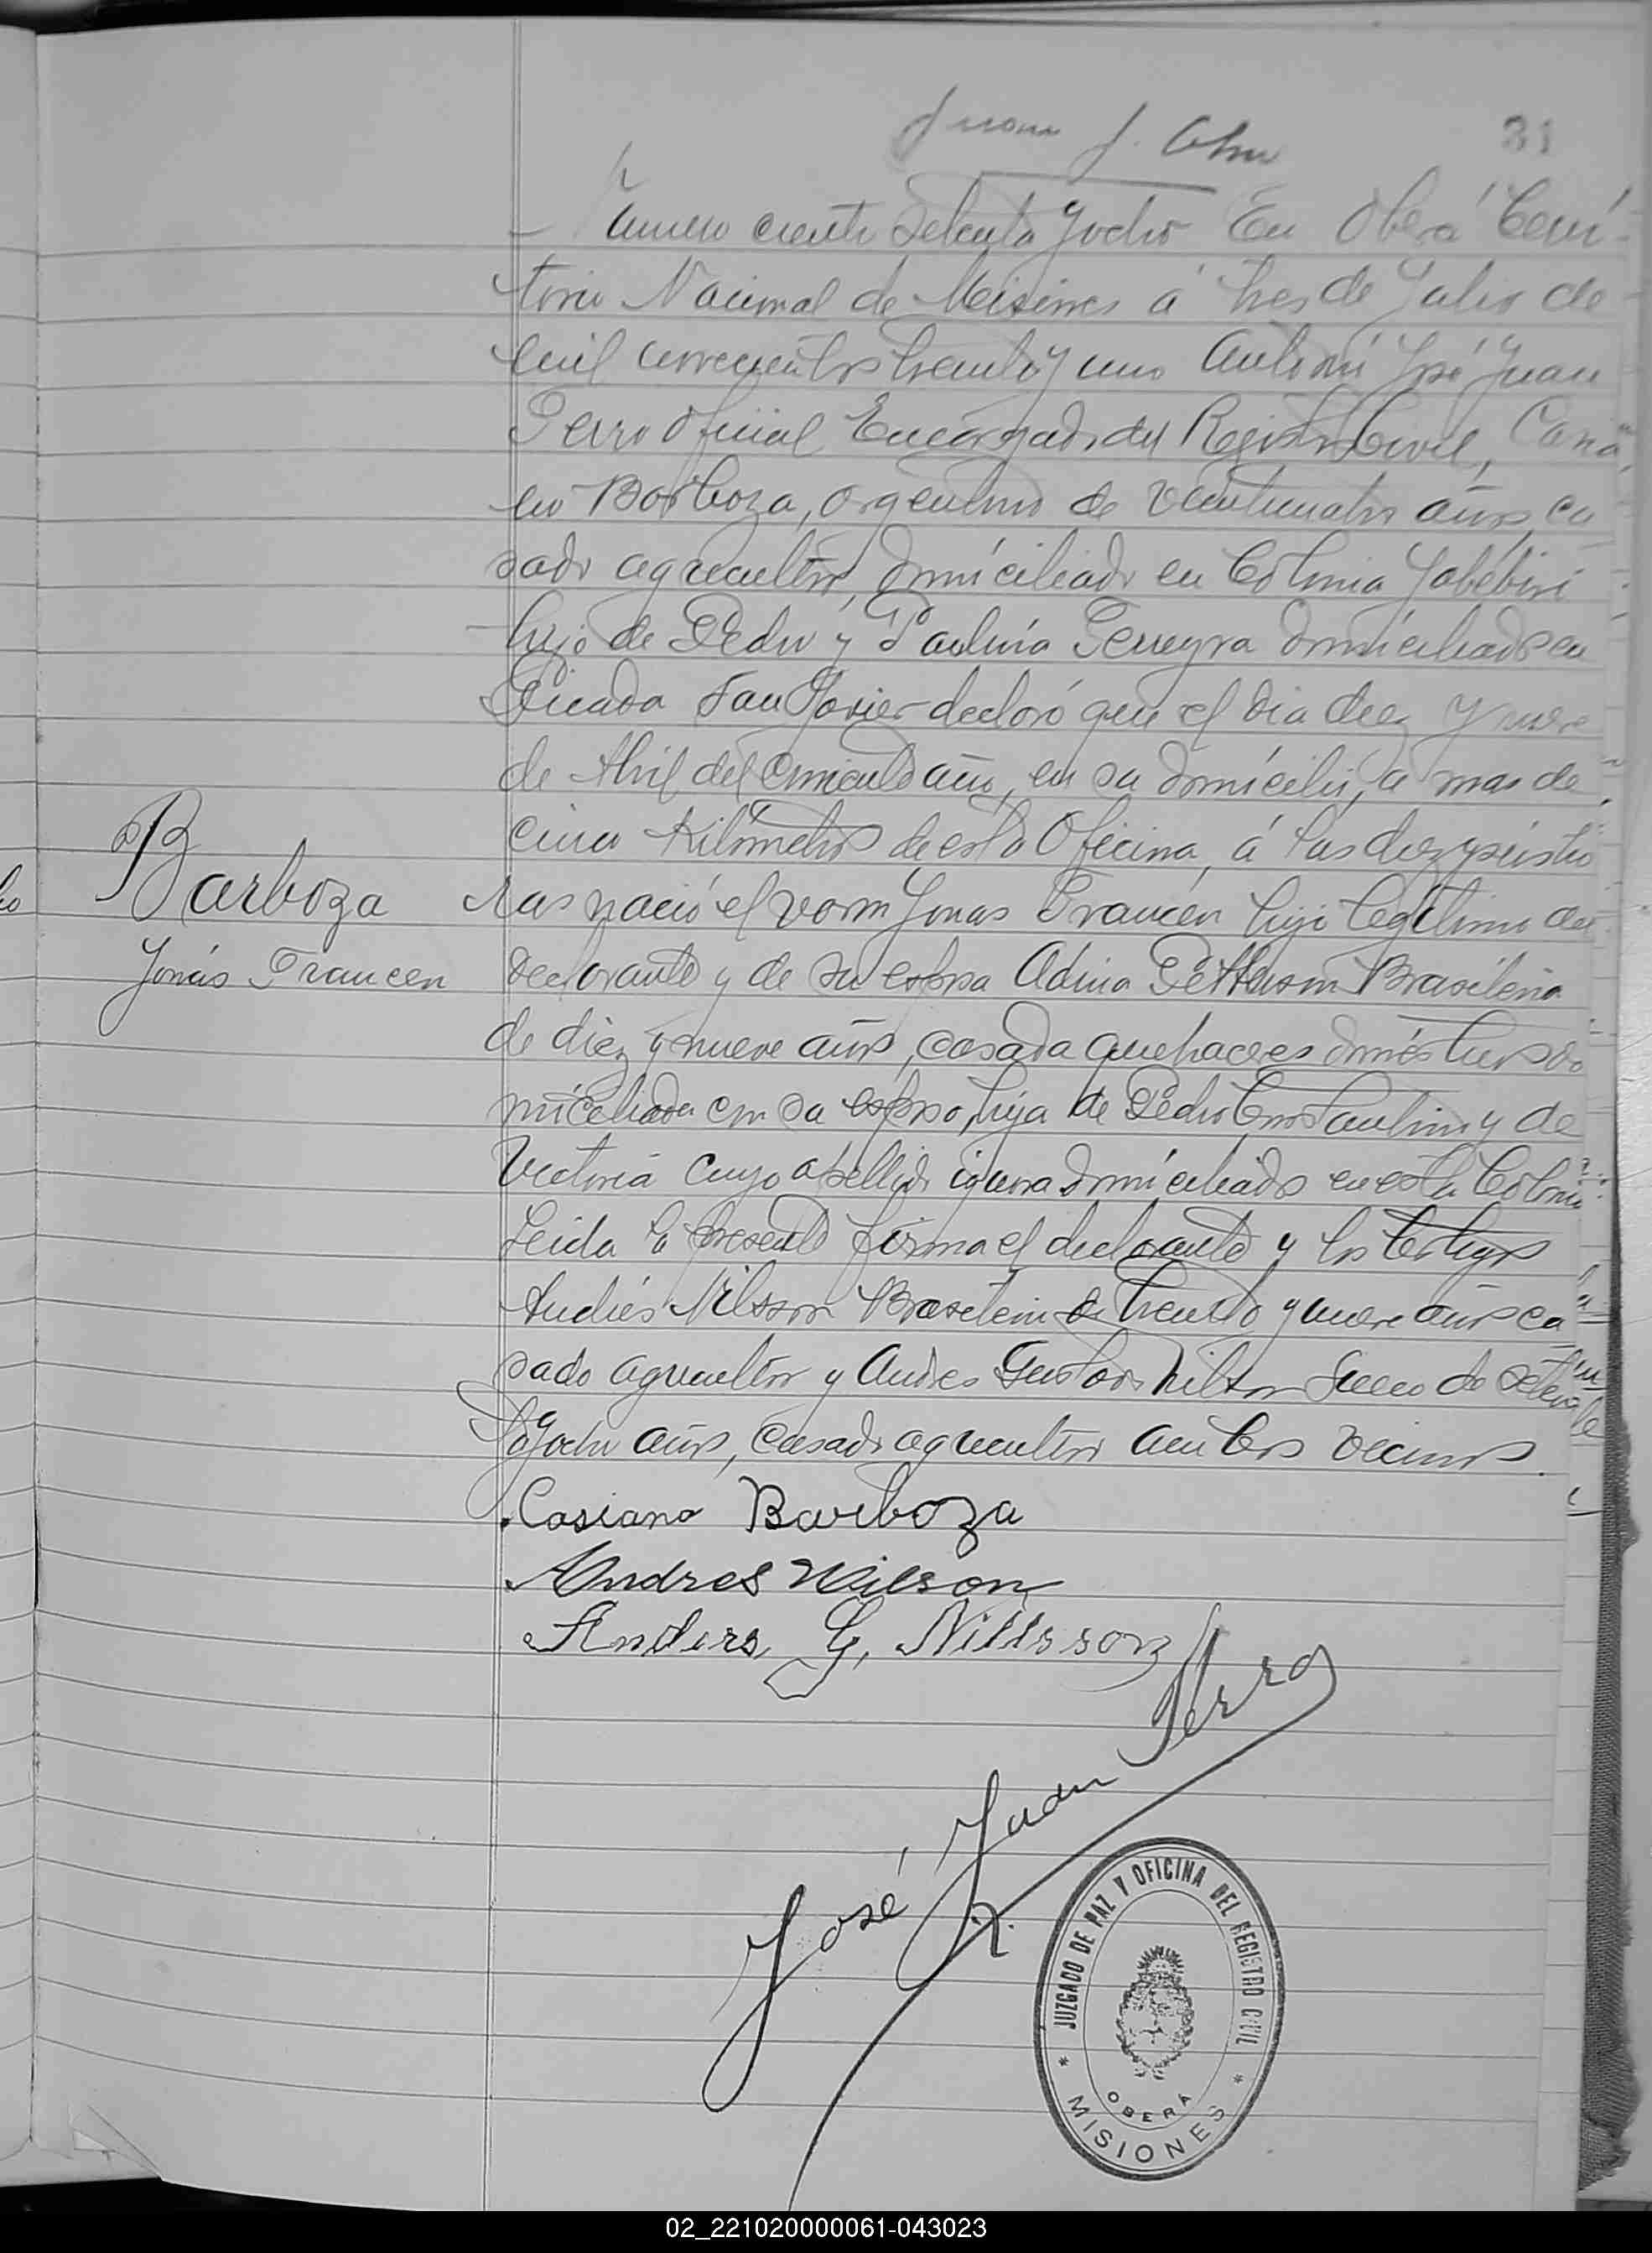 Juan J.
31
Número ciento setenta y ocho En Oberá Terri-
torio Nacional de Misiones á tres de Julio de
mil novecientos treinta y uno Ante mi José Juan
Perro Oficial Encargado del Registro Civil, Casia
no Barboza, argentino de veinticuatro años, ca
sado agricultor, domiciliado en Colonia Yabebiri
hijo de Pedro y Paulina Ferreyra domiciliados en
Picada San Javier declaró que el dia diez y nueve
de Abril del corriente año, en su domicilio, a mas de
cinco Kilometros de esta Oficina, á las diez y seis ho
ras nació el varon Jonas Francen hijo legitimo del
declarante y de su esposa Adina Pettersson Brasileña
de diez y nueve años, casada quehaceres domésticos do
miciliada con su esposo, hija de Pedro Constantino y de
Victoria cuyo apellido ignora domiciliados en esta Colonia
Leida la presente firma el declarante y los testigos
Andrés Nilsson Brasilero de treinta y nueve años ca
sado agricultor y Andres Gustavo Nilson Sueco de seten
ta y ocho años, casado agricultor ambos vecinos.
Barboza
Jonás Francen
Casiano Barboza
Andres Nilson
Anders G. Nillsson
José Juan Perro
JUZGADO DE PAZ Y OFICINA DEL REGISTRO CIVIL
OBERÁ
* MISIONES *
02_221020000061-043023